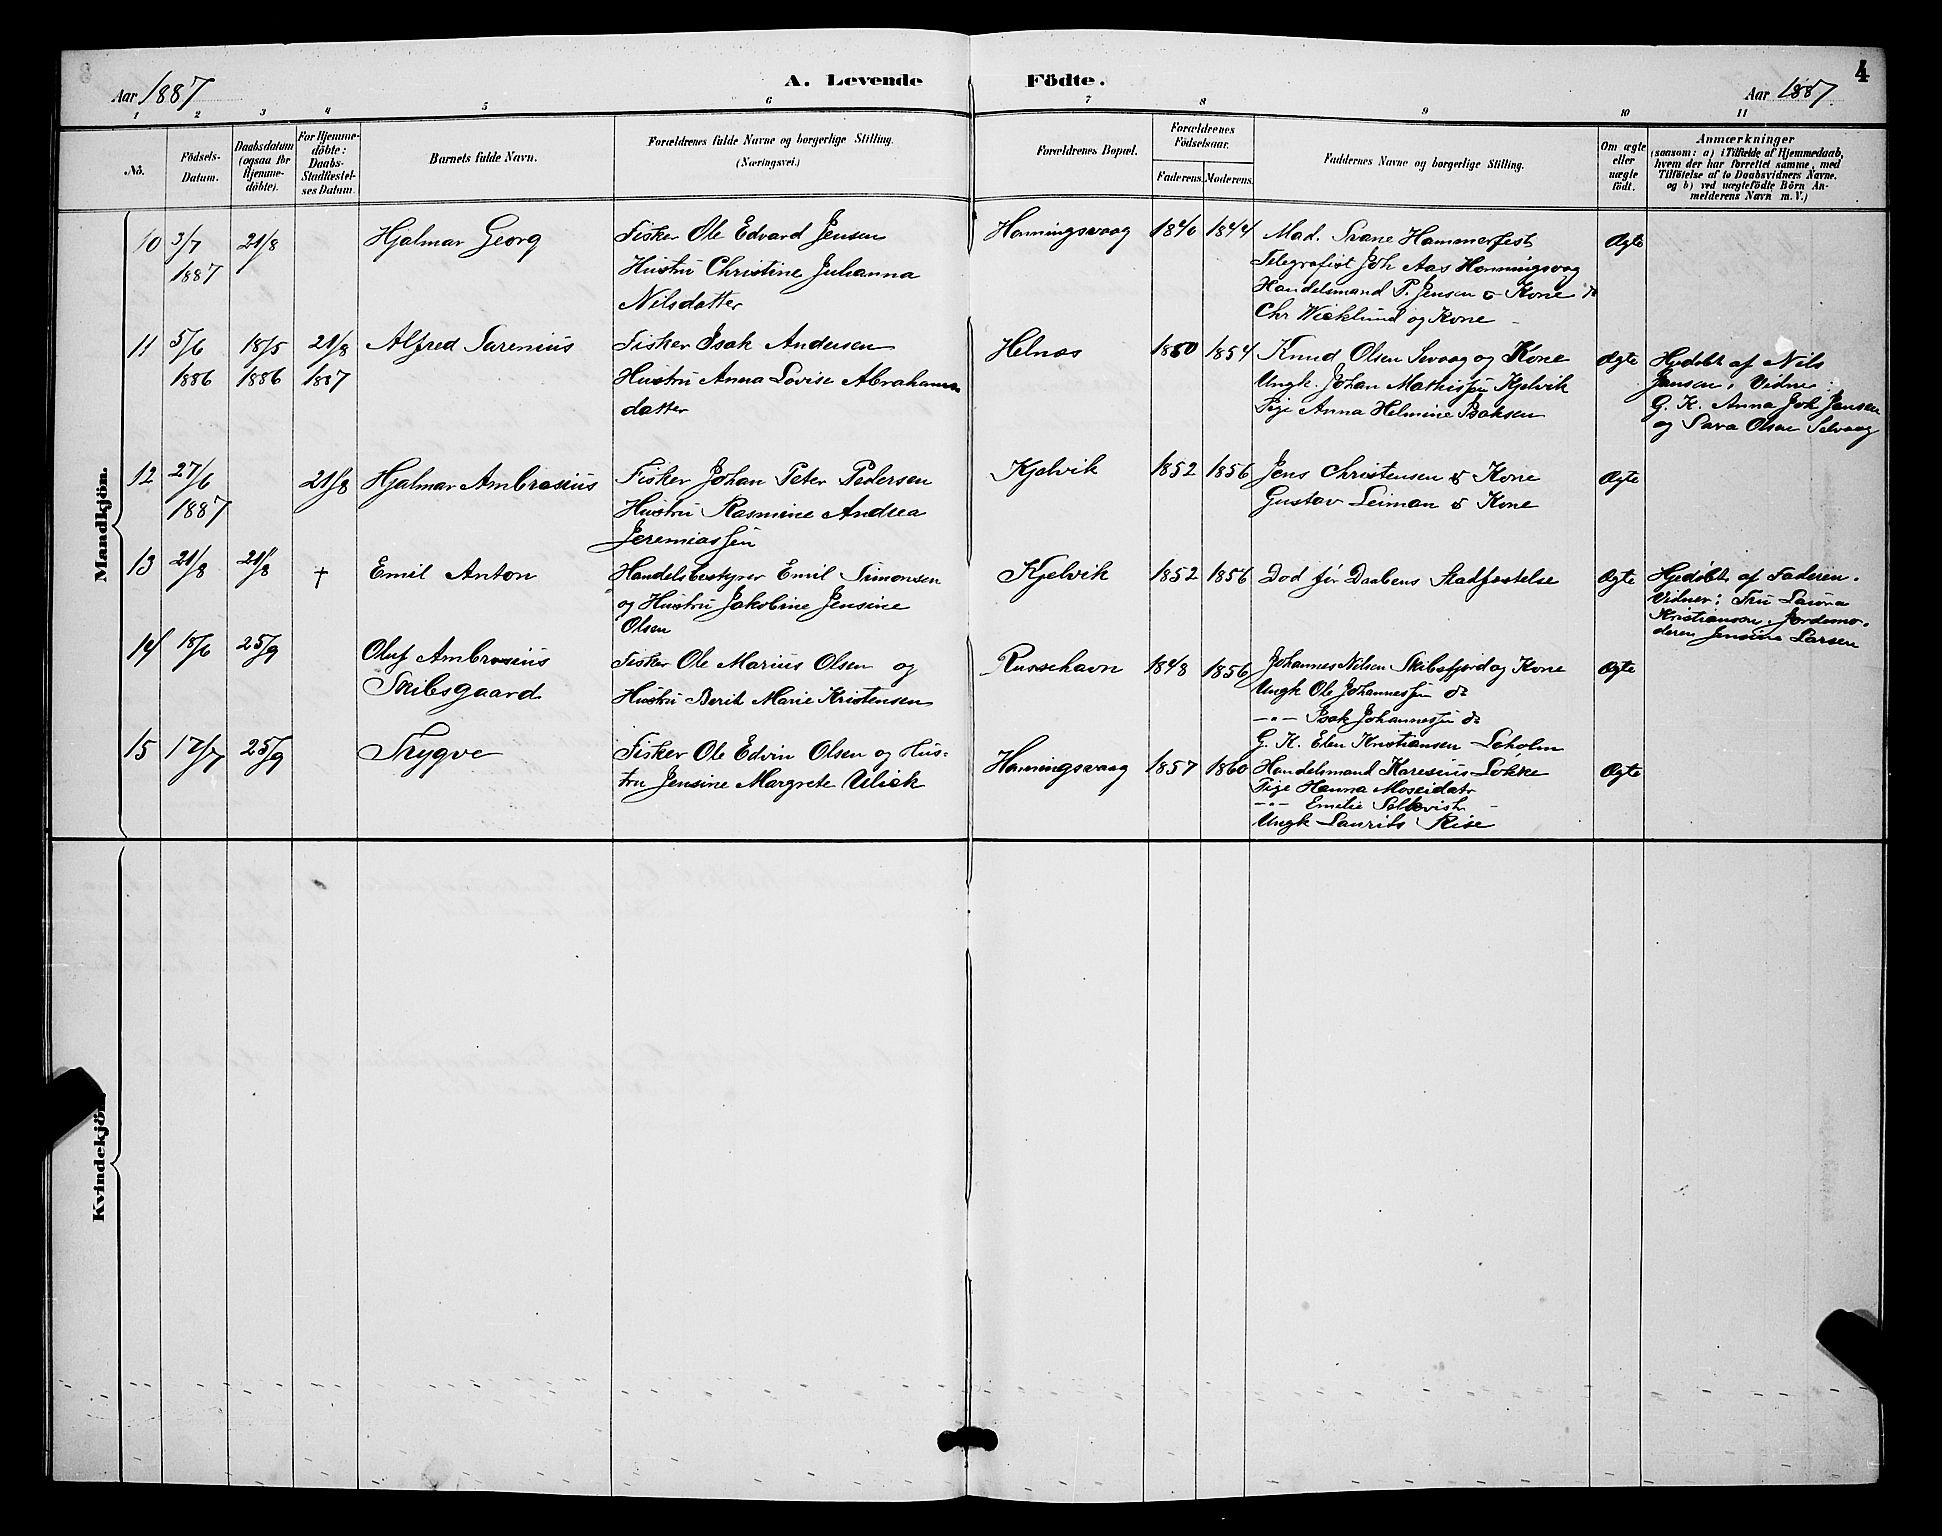 Aar 1887
A. Levende Födte.
Aar 1887.
4
1 2 3 4 5 6 7 8 9 10 11
No.
Födsels-
Datum.
Daabsdatum
(ogsaa for
Hjemme-
döbte).
For Hjemme-
döbte:
Daabs-
Stadfæstel-
ses Datum.
Barnets fulde Navn.
Forældrenes fulde Navne og borgerlige Stilling.
(Næringsvei.)
Forældrenes Bopæl.
Forældrenes
Födselsaar.
Faderens.
Moderens.
Faddernes Navne og borgerlige Stilling.
Om ægte
eller
uægte
födt.
Anmærkninger
(saasom: a) i Tilfælde af Hjemmedaab,
hvem der har forrettet samme, med
Tilföielse af to Daabsvidners Navne.
og b) ved uægtefödte Börn An-
melderens Navn m. V.)
Mandkjön.
10 3/7 1887 21/8 Hjalmar Georg
Fisker Ole Edvard Jensen
Hustru Christine Juhanna
Nilsdatter
Honningsvaag 1840 1844
Mad. Svane Hammerfest
Telegrafist Joh Aas Honningsvaag
Handelsmand P. Jensen & Kone
Chr Wicklund og Kone
Ægte
11 5/6 1886 18/5 1886 21/8 1887 Alfred Sarenius
Fisker Isak Andersen
Hustru Anna Lovise Abrahams
datter
Helnæs 1850 1854
Knud Olsen Sevaag og Kone
Ungk. Johan Mathissen Kjelvik
Pige Anna Helmine Isaksen
Ægte
Hjedöbt af Nils
Jansen, Vidne:
G. K. Anna Joh Jansen
og Sara Olsen Selvaag
12 27/6 1887 21/8 Hjalmar Ambrosius
Fisker Johan Peter Pedersen
Hustru Rasmine Andrea
Jeremiassen
Kjelvik 1852 1856
Jens Christensen & Kone
Gustav Leiman & Kone
Ægte
13 21/8 21/8 † Emil Anton
Handelsbestyrer Emil Simonsen
og Hustru Jakobine Jensine
Olsen
Kjelvik 1852 1856
Död för Daabens Stadfæstelse
Ægte
Hjedöbt af Faderen.
Vidner: Fru Laura
Kristianson, Jordemo-
deren Jensine Larsen
14 18/6 25/9 Oluf Ambrosius
Skibsgaard
Fisker Ole Marius Olsen og
Hustru Berit Marie Kristensen
Russehavn 1848 1856
Johannes Nilsen Skibsfjord og Kone
Ungk Ole Johannessen do
—"— Isak Johannessen do
G. K. Elen Kristiansen Loholm
Ægte
15 12/7 25/9 Trygve
Fisker Ole Edvin Olsen og Hus-
tru Jensine Margrete Ulick
Honningsvaag 1857 1860
Handelsmand Karesius Lokke
Pige Hanna Moseidatr
—"— Emelie
Ungk Laurits Rise
Ægte
Kvindekjön